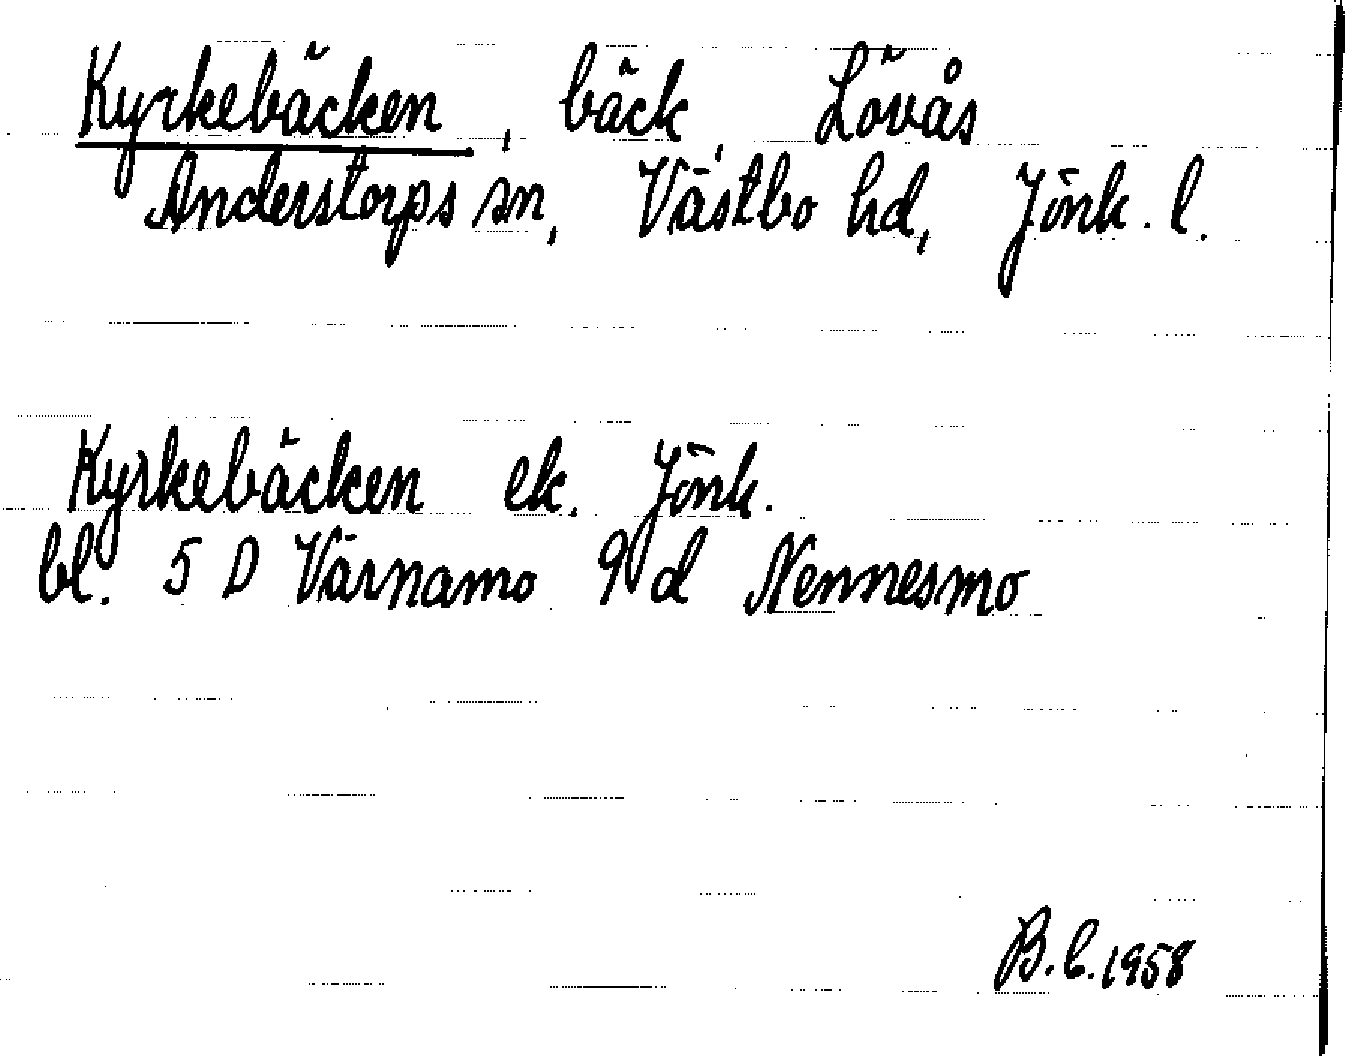 Kyrkebäcken, bäck, Lövås
Anderstorps sn, Västbo hd, Jönk. l.
Kyrkebäcken ek. Jönk.
bl. 5 D Värnamo 9 d Nennesmo
B.b. 1958